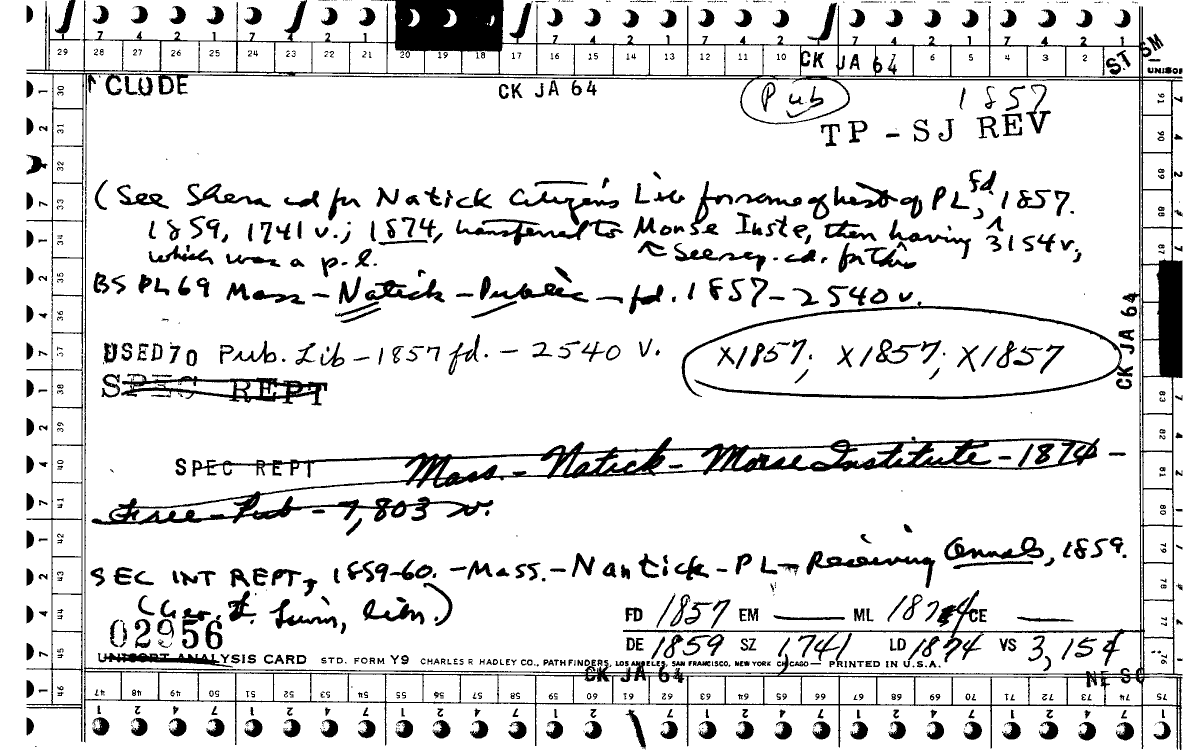 7 4 2 1 7 4 2 1 7 4 2 1 7 4 2 1 7 4 2 1
29 28 27 26 25 24 23 22 21 20 19 18 17 16 15 14 13 12 11 10 CK JA 64 6 5 4 3 2 ST SM
UNISOR
CLUDE CK JA 64 Pub 1857
TP - SJ REV
(See Shera cd for Natick Citizen's Lib for some of hist of PL, fd. 1857.
1859, 1741 v.; 1874, transferred to Morse Inste, then having 3154 v,
which was a p.l. See sep. cd. for this
BS PL 69 Mass - Natick - Public - fd. 1857 - 2540 v.
USED 70 Pub. Lib - 1857 fd. - 2540 V. X1857; X1857; X1857
SPEC REPT
SPEC REPT Mass. - Natick - Morse Institute - 1874 -
Free - Pub - 7,803 v.
SEC INT REPT, 1859-60. - Mass. - Nantick - PL - Receiving Annals, 1859.
(Geo. libn.)
FD 1857 EM — ML 1874 CE —
02956
DE 1859 SZ 1741 LD 1874 VS 3,154
UNISORT ANALYSIS CARD STD. FORM Y9 CHARLES R HADLEY CO., PATHFINDERS, LOS ANGELES, SAN FRANCISCO, NEW YORK CHICAGO PRINTED IN U.S.A.
CK JA 64 NE SC
CK JA 64
46 47 48 49 50 51 52 53 54 55 56 57 58 59 60 61 62 63 64 65 66 67 68 69 70 71 72 73 74 75
1 2 4 7 1 2 4 7 1 2 4 7 1 2 4 7 1 2 4 7 1 2 4 7